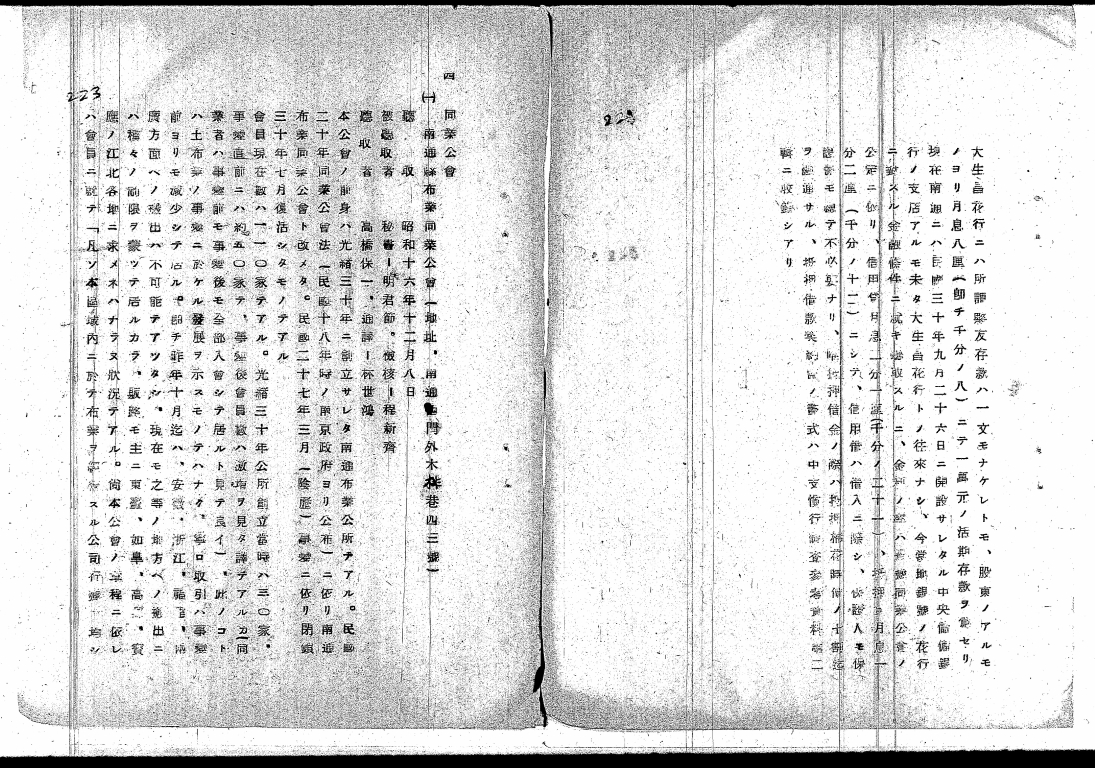 大生昌花行ニハ所謂聚友存款ハ一文モナケレトモ、股東ノアルモ
ノヨリ月息八厘(即チ千分ノ八)ニテ一萬元ノ活期存款ヲ受セリ
現在南通ニハ民國三十年九月二十六日ニ開設サレタル中央儲備銀
行ノ支店アルモ未タ大生昌花行トノ往來ナシ、今當地銀號ノ花行
ニ對スル金融條件ニ就キ聽取スルニ、金利ノ點ハ 同業公會ノ
公定ニ依リ、信用貸月息二分一厘(千分ノ二十一)、抵押ヨ月息一
分二厘(千分ノ十二)ニシテ、信用借ハ借入ニ際シ、保證人モ保
證書モ要テ不必要ナリ、 抵押借金ノ際ハ抵押棉花時價ノ十割迄
ヲ融通サル、抵押借款契約書ノ書式ハ中支慣行調査參考資料第二
輯ニ收錄シアリ
223
四 同業公會
(一) 南通縣布業同業公會(地址、南通西門外木桩巷四三號)
聽 取 昭和十六年十二月八日
被聽取者 秘書ー明君節。 ー程新齊
聽取者 高橋保一、通譯ー林世鴻
本公會ノ前身ハ光緒三十年ニ創立サレタ南通布業公所デアル。民國
二十年同業公會法(民國十八年時ノ南京政府ヨリ公布)ニ依リ南通
布業同業公會ト改メタ。民國二十七年三月(陰曆)事變ニ依リ閉鎖
三十年七月復活シタモノデアル
會員現在數ハ一一〇家デアル。光緒三十年公所創立當時ハ三〇家、
事變直前ニハ約五〇家デ、事變後會員數ハ激增ヲ見タ譯デアルカ(同
業者ハ事變前モ事變後モ全部入會シテ居ルト見テ良イ)、此ノコト
ハ土布業ノ事變ニ於ケル發展ヲ示スモノデハナク、寧ロ取引ハ事變
前ヨリモ減少シテ居ル。即チ昨年十月迄ハ、安徽、浙江、福建、
廣方面ヘノ搬出ハ不可能デアツタシ。現在モ之等ノ地方ヘノ搬出ニ
ハ種々ノ制限ヲ蒙ツテ居ルカラ、販路モ主ニ東臺、如皋、高 、寶
應ノ江北各地ニ求メネハナラヌ狀況デアル。尙本公會ノ章程ニ依レ
ハ會員ニ就テ「凡ソ本區域內ニ於テ布業ヲ スル公司行號ハ均シ
223